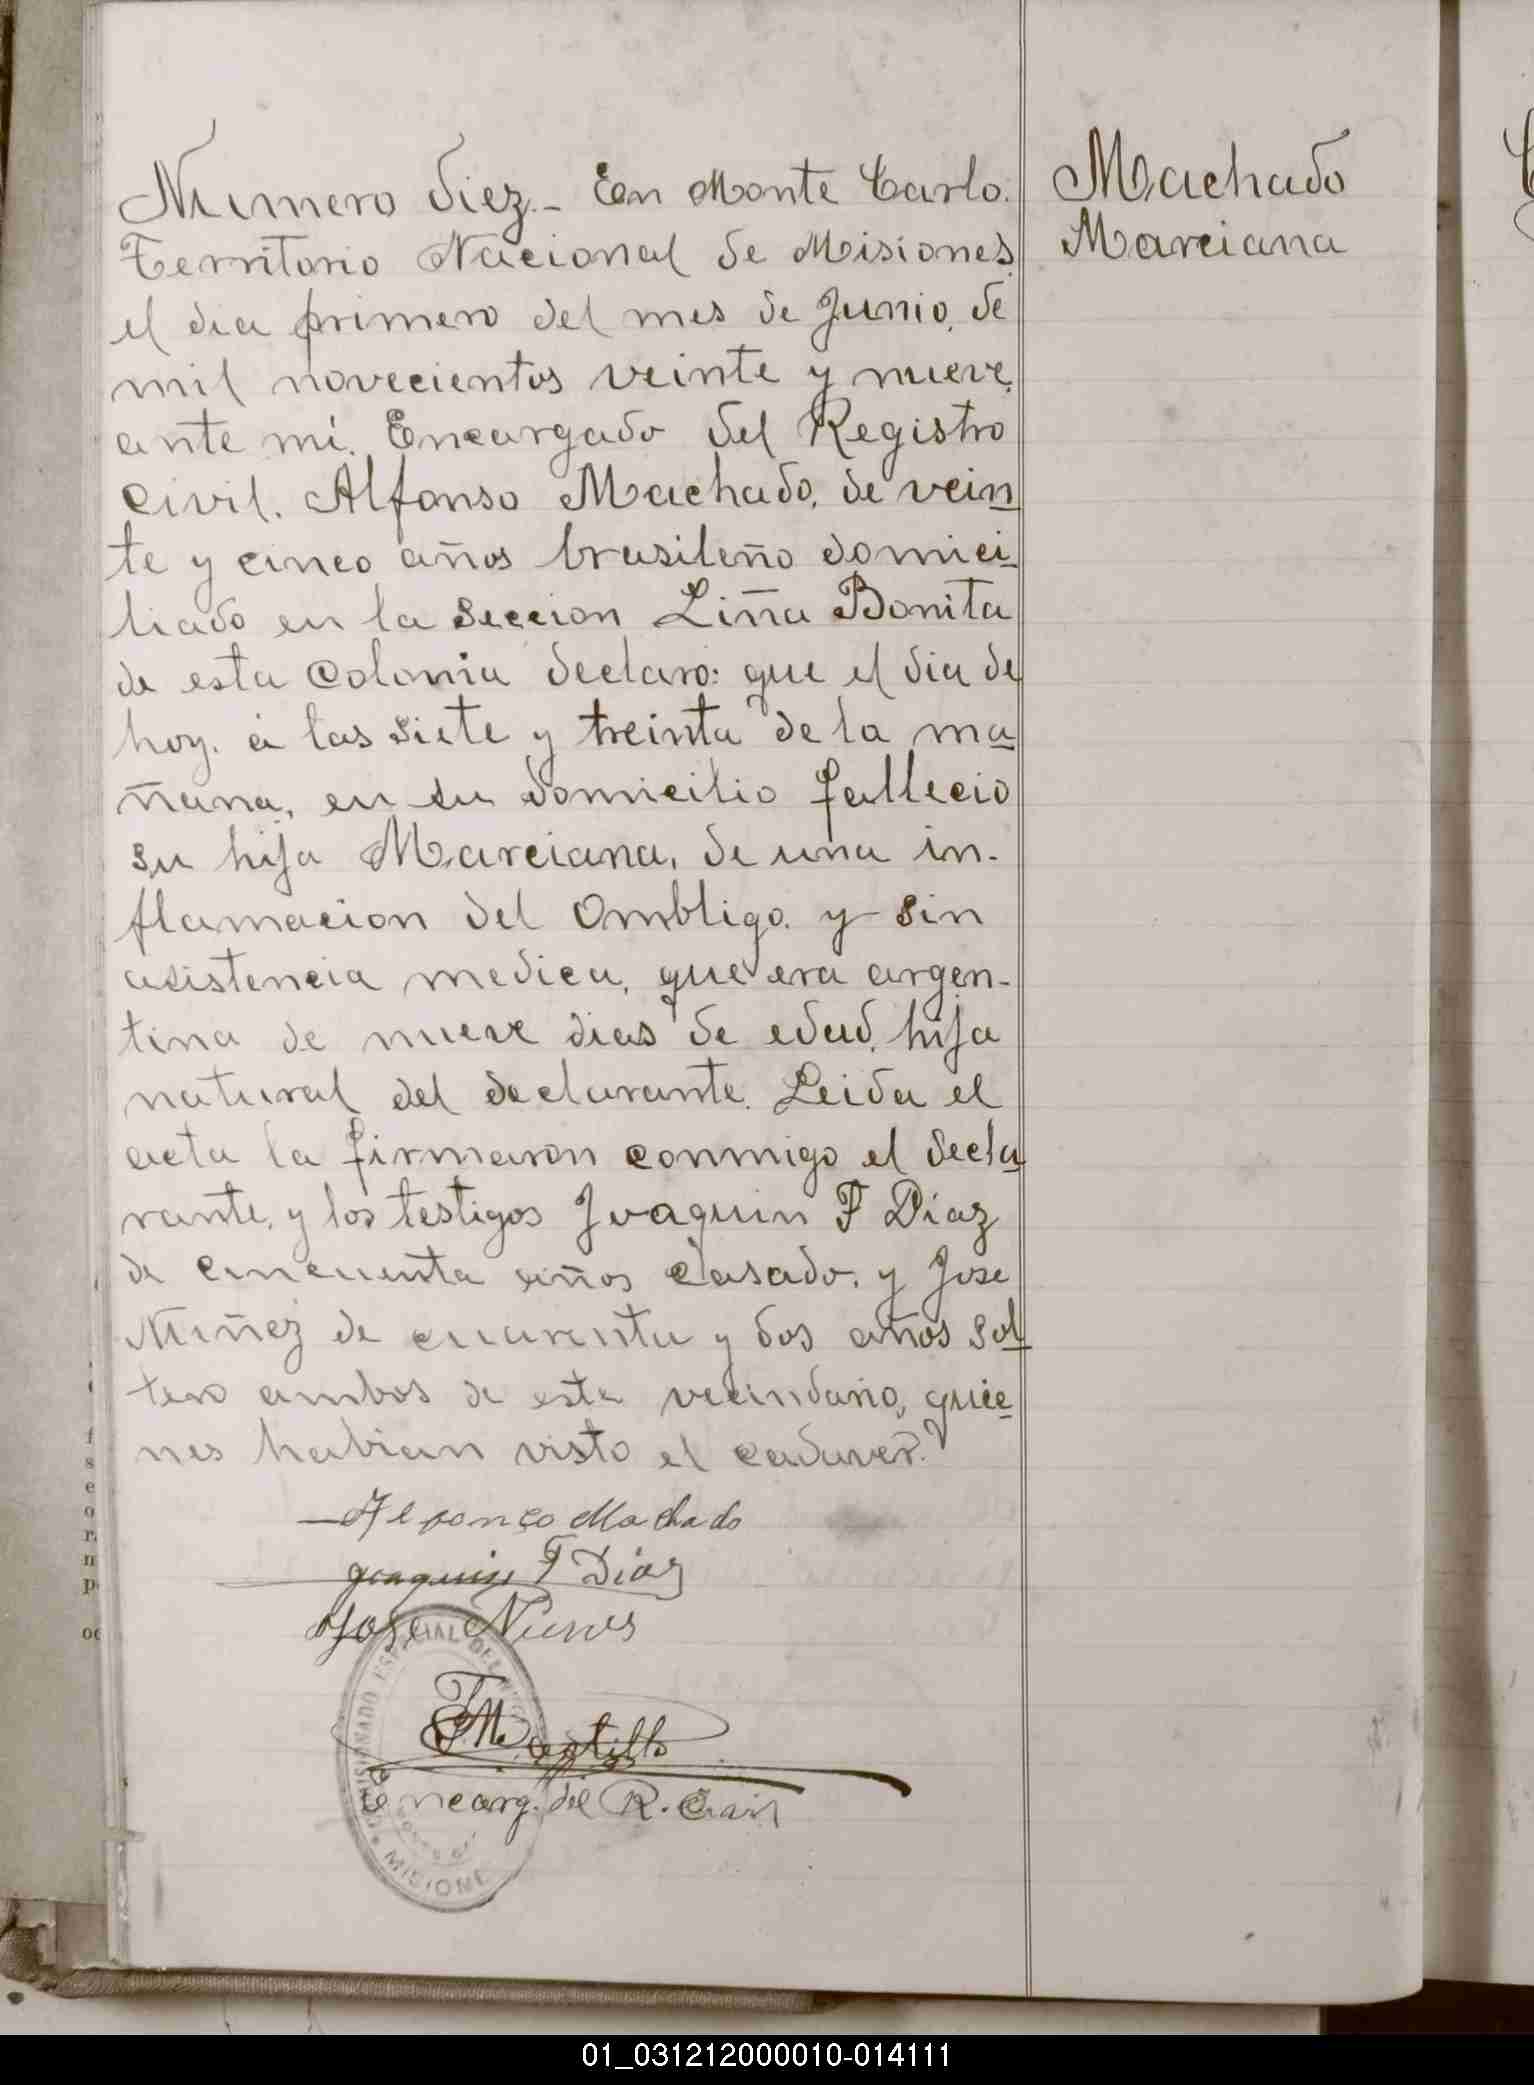 Numero diez.- En Monte Carlo.
Territorio Nacional de Misiones
el dia primero del mes de Junio, de
mil novecientos veinte y nueve,
ante mi. Encargado del Registro
Civil. Alfonso Machado, de vein
te y cinco años brasileño domici
liado en la Seccion Liña Bonita
de esta Colonia declaro: que el dia de
hoy. á las siete y treinta de la ma
ñana, en su domicilio fallecio
su hija Marciana, de una in-
flamacion del Ombligo. y sin
asistencia medica, que era argen-
tina de nueve dias de edad, hija
natural del declarante. Leida el
acta la firmaron conmigo el decla
rante, y los testigos Joaquin F Diaz
de cincuenta años casado, y Jose
Nuñez de cuarenta y dos años sol
tero ambos de este vecindario, quie
nes habian visto el cadaver.
Alfonço Machado
Joaquin F Diaz
Jose Nunes
Encarg. del R. Civil
MISIONE
Machado
Marciana
01_031212000010-014111